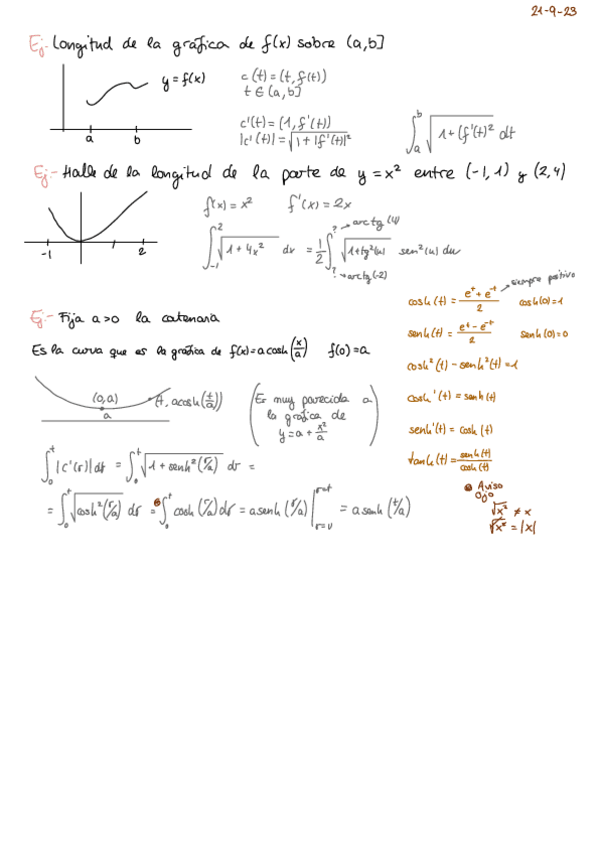 21-9-23
Ej.- Longitud de la gráfica de f(x) sobre (a,b]
y = f(x)
a b
c(t) = (t, f(t))
t ∈ (a,b]
c'(t) = (1, f'(t))
|c'(t)| = √(1+|f'(t)|²)
∫_a^b √(1+(f'(t)²) dt
Ej.- Halle de la longitud de la parte de y = x² entre (-1,1) y (2,4)
-1 2
f(x) = x² f'(x) = 2x
∫_{-1}^2 √(1+4x²) dx = 1/2 ∫_?^? √(1+tg²(u)) sen²(u) du
→ arctg(4)
→ arctg(-2)
Ej.- Fija a>0 la catenaria
Es la curva que es la gráfica de f(x) = a cosh(x/a) f(0) = a
(0,a) (t, a cosh(t/a))
a
(Es muy parecida a
la gráfica de
y = a + x²/a)
∫_0^t |c'(r)| dr = ∫_0^t √(1+senh²(r/a)) dr =
= ∫_0^t √(cosh²(r/a)) dr = ∫_0^t cosh(r/a) dr = a senh(r/a) |_{r=0}^{r=t} = a senh(t/a)
cosh(t) = (e^t + e^-t)/2 → siempre positivo cosh(0)=1
senh(t) = (e^t - e^-t)/2 senh(0)=0
cosh²(t) - senh²(t) = 1
cosh'(t) = senh(t)
senh'(t) = cosh(t)
tanh(t) = senh(t)/cosh(t)
Aviso
Ojo
√x² ≠ x
√x² = |x|